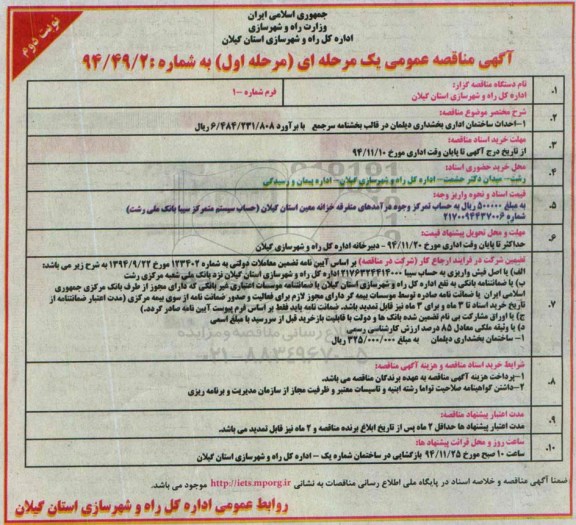 نوبت دوم
جمهوری اسلامی ایران
وزارت راه و شهرسازی
اداره کل راه و شهرسازی استان گیلان
آگهی مناقصه عمومی یک مرحله ای (مرحله اول) به شماره : ۹۴/۴۹/۲
۱.
نام دستگاه مناقصه گزار:
اداره کل راه و شهرسازی استان گیلان
فرم شماره ۱۰۰
۲.
شرح مختصر موضوع مناقصه:
۱–احداث ساختمان اداری بخشداری دیلمان در قالب بخشنامه سرجمع با برآورد ۶/۴۸۴/۲۳۱/۸۰۸ ریال
۳.
مهلت خرید اسناد مناقصه:
از تاریخ درج آگهی تا پایان وقت اداری مورخ ۹۴/۱۱/۱۰
۴.
محل خرید حضوری اسناد:
رشت– میدان دکتر حشمت– اداره کل راه و شهرسازی گیلان– اداره پیمان و رسیدگی
۵.
قیمت اسناد و نحوه واریز وجه:
به مبلغ ۵۰۰۰۰۰ ریال به حساب تمرکز وجوه درآمدهای متفرقه خزانه معین استان گیلان (حساب سیستم متمرکز سیبا بانک ملی رشت)
شماره ۲۱۷۰۰۹۴۴۳۷۰۰۶
۶.
مهلت و محل تحویل پیشنهاد قیمت:
حداکثر تا پایان وقت اداری مورخ ۹۴/۱۱/۲۰ – دبیرخانه اداره کل راه و شهرسازی گیلان
۷.
تضمین شرکت در فرآیند ارجاع کار (شرکت در مناقصه) بر اساس آیین نامه تضمین معاملات دولتی به شماره ۱۲۳۴۰۲ مورخ ۱۳۹۴/۹/۲۲ به شرح زیر می باشد:
الف) یا اصل فیش واریزی به حساب سیبا ۲۱۷۶۳۲۴۴۱۴۰۰۰ اداره کل راه و شهرسازی استان گیلان نزد بانک ملی شعبه مرکزی رشت
ب) یا ضمانتنامه بانکی به نفع اداره کل راه و شهرسازی استان گیلان یا ضمانتنامه موسسات اعتباری غیر بانکی که دارای مجوز از طرف بانک مرکزی جمهوری
اسلامی ایران یا ضمانت نامه صادره توسط موسسات بیمه گر دارای مجوز لازم برای فعالیت و صدور ضمانت نامه از سوی بیمه مرکزی (مدت اعتبار ضمانتنامه از
تاریخ خرید اسناد تا ۳ ماه و برای ۳ ماه نیز قابل تمدید باشد. ضمانت نامه باید فقط بر اساس فرم پیوست آیین نامه صادر گردد.)
ج) یا اوراق مشارکت بی نام تضمین شده بانک ها و دولت با قابلیت بازخرید قبل از سررسید با مبلغ اسمی
د) یا وثیقه ملکی معادل ۸۵ درصد ارزش کارشناسی رسمی
۱– ساختمان بخشداری دیلمان به مبلغ ۳۲۵/۰۰۰/۰۰۰ ریال
۸.
شرایط خرید اسناد مناقصه و هزینه آگهی مناقصه:
۱–پرداخت هزینه آگهی مناقصه به عهده برندگان مناقصه می باشد.
۲–داشتن گواهینامه صلاحیت تواما رشته ابنیه و تاسیسات معتبر و ظرفیت مجاز از سازمان مدیریت و برنامه ریزی
۹.
مدت اعتبار پیشنهاد مناقصه:
مدت اعتبار پیشنهاد ها حداقل ۲ ماه پس از تاریخ ابلاغ برنده مناقصه و ۲ ماه نیز قابل تمدید می باشد.
۱۰.
ساعت روز و محل قرائت پیشنهاد ها:
ساعت ۱۰ صبح مورخ ۹۴/۱۱/۲۵ بازگشایی در ساختمان شماره یک – اداره کل راه و شهرسازی استان گیلان
ضمنا آگهی مناقصه و خلاصه اسناد در پایگاه ملی اطلاع رسانی مناقصات به نشانی http://iets.mporg.ir موجود می باشد.
روابط عمومی اداره کل راه و شهرسازی استان گیلان